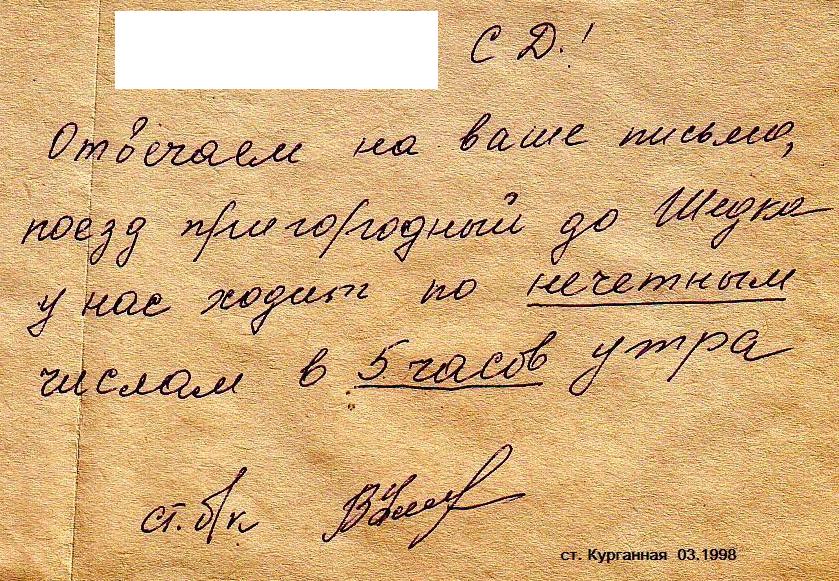 С Д.!
Отвечаем на ваше письмо,
поезд пригородный до Шедка
у нас ходит по нечетным
числам в 5 часов утра
ст. б/к
ст. Курганная 03.1998